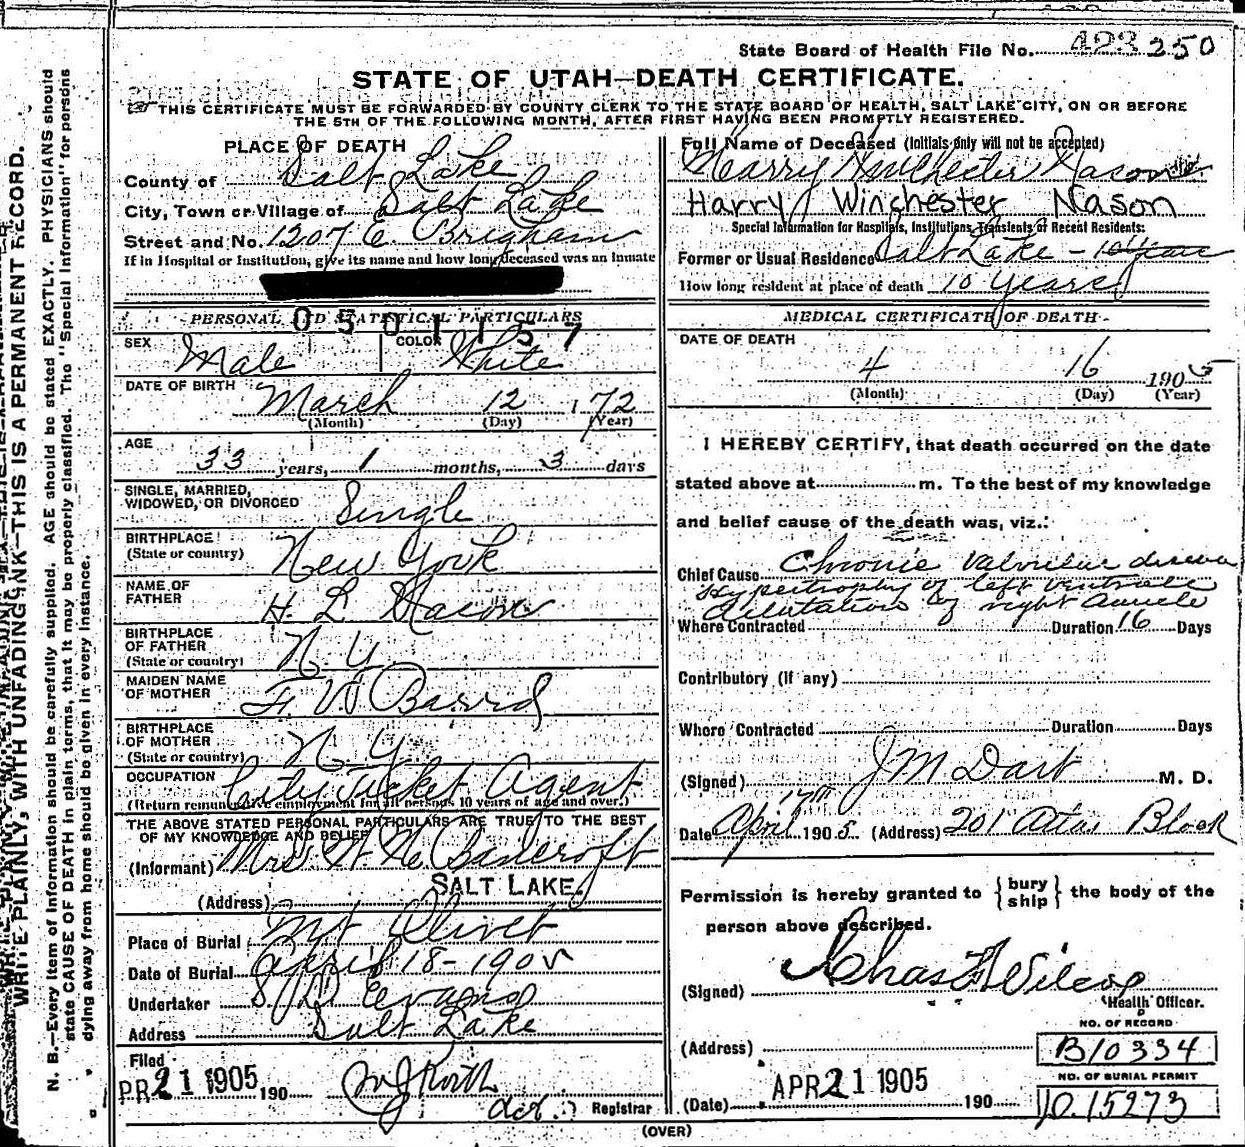 State Board of Health File No. 423 250
STATE OF UTAH—DEATH CERTIFICATE.
THIS CERTIFICATE MUST BE FORWARDED BY COUNTY CLERK TO THE STATE BOARD OF HEALTH, SALT LAKE CITY, ON OR BEFORE
THE 5TH OF THE FOLLOWING MONTH, AFTER FIRST HAVING BEEN PROMPTLY REGISTERED.
WRITE PLAINLY, WITH UNFADING INK—THIS IS A PERMANENT RECORD.
N. B.—Every item of information should be carefully supplied. AGE should be stated EXACTLY. PHYSICIANS should
state CAUSE OF DEATH in plain terms, that it may be properly classified. The "Special Information" for persons
dying away from home should be given in every instance.
PLACE OF DEATH
County of Salt Lake
City, Town or Village of Salt Lake
Street and No. 1207 E. Brigham
If in Hospital or Institution, give its name and how long deceased was an inmate
PERSONAL AND STATISTICAL PARTICULARS
0501157
SEX Male COLOR White
DATE OF BIRTH March 12 1 72
(Month) (Day) (Year)
AGE
33 years, 1 months, 3 days
SINGLE, MARRIED,
WIDOWED, OR DIVORCED Single
BIRTHPLACE
(State or country) New York
NAME OF
FATHER H. L. Nason
BIRTHPLACE
OF FATHER
(State or country) N. Y.
MAIDEN NAME
OF MOTHER F. V. Baird
BIRTHPLACE
OF MOTHER
(State or country) N. Y.
OCCUPATION City Ticket Agent
(Return remunerative employment for all persons 10 years of age and over.)
THE ABOVE STATED PERSONAL PARTICULARS ARE TRUE TO THE BEST
OF MY KNOWLEDGE AND BELIEF
(Informant) Mrs. W. H. Bancroft
(Address) SALT LAKE.
Place of Burial Mt Olivet
Date of Burial April 18 - 1905
Undertaker S. D. Evans
Address Salt Lake
Filed
APR 21 1905 190
Registrar
Full Name of Deceased (Initials only will not be accepted)
Harry Winchester Nason
Harry Winchester Nason
Special Information for Hospitals, Institutions, Transients or Recent Residents:
Former or Usual Residence Salt Lake - 10 years
How long resident at place of death 10 years
MEDICAL CERTIFICATE OF DEATH
DATE OF DEATH
4 16 1905
(Month) (Day) (Year)
I HEREBY CERTIFY, that death occurred on the date
stated above at m. To the best of my knowledge
and belief cause of the death was, viz.:
Chief Cause Chronic Valvular disease
Hypertrophy of left ventricle
dilatation of right auricle
Where Contracted Duration 16 Days
Contributory (if any)
Where Contracted Duration Days
(Signed) J M Dart M. D.
Date April 17th 1905. (Address) 201 Atlas Block
Permission is hereby granted to {bury ship} the body of the
person above described.
(Signed) Chas F Wilcox
Health Officer.
(Address)
NO. OF RECORD
B10334
NO. OF BURIAL PERMIT
15273
(Date) APR 21 1905 190
(OVER)